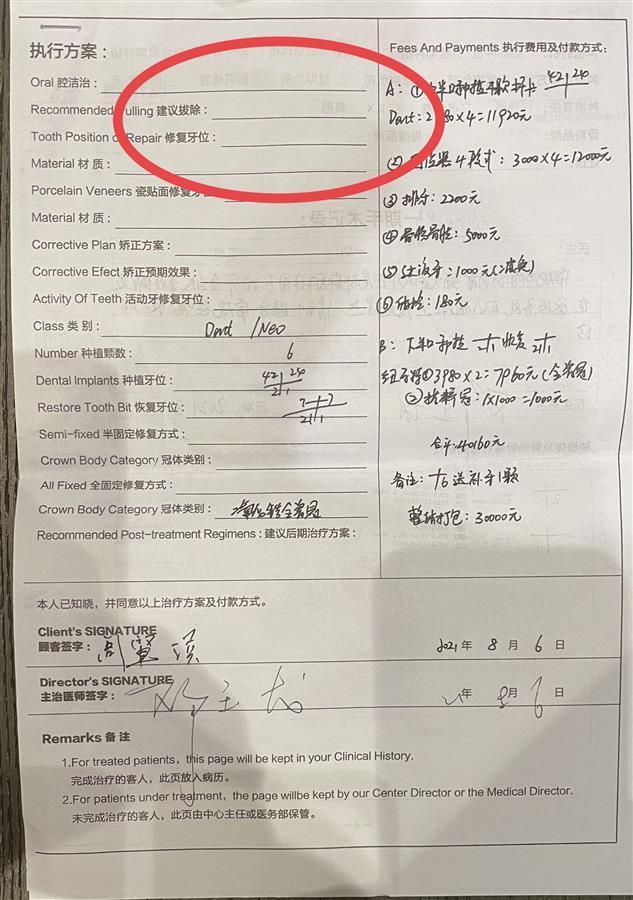 执行方案：
Oral 腔洁治：
Recommended Pulling 建议拔除：
Tooth Position of Repair 修复牙位：
Material 材 质：
Porcelain Veneers 瓷贴面修复牙位
Material 材 质：
Corrective Plan 矫正方案：
Corrective Efect 矫正预期效果：
Activity Of Teeth 活动牙修复牙位：
Class 类 别： Dent /Neo
Number 种植颗数： 6
Dental Implants 种植牙位： 42 24 21
Restore Tooth Bit 恢复牙位： 7 7 21
Semi-fixed 半固定修复方式：
Crown Body Category 冠体类别：
All Fixed 全固定修复方式：
Crown Body Category 冠体类别： 二氧化锆全瓷冠
Recommended Post-treatment Regimens：建议后期治疗方案：
Fees And Payments 执行费用及付款方式：
A：① 上半口种植 42 24
Dent：2980×4=11920元
② 4 3000×4=12000元
③ 2200元
④ 骨粉骨胶：5000元
⑤ 1000元
⑥ 180元
B：下半口种植 恢复
① 3980×2=7960元（全瓷冠）
② 1×1000=1000元
合计：40160元
备注： 6 送补牙1颗
整体打包：30000元
本人已知晓，并同意以上治疗方案及付款方式。
Client's SIGNATURE
顾客签字：
2021 年 8 月 6 日
Director's SIGNATURE
主治医师签字：
年 8月 6 日
Remarks 备 注
1.For treated patients, this page will be kept in your Clinical History.
完成治疗的客人，此页放入病历。
2.For patients under treatment, the page willbe kept by our Center Director or the Medical Director.
未完成治疗的客人，此页由中心主任或医务部保管。